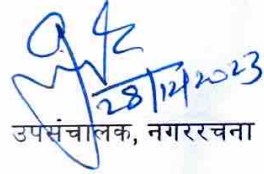 28/12/2023
उपसंचालक, नगररचना